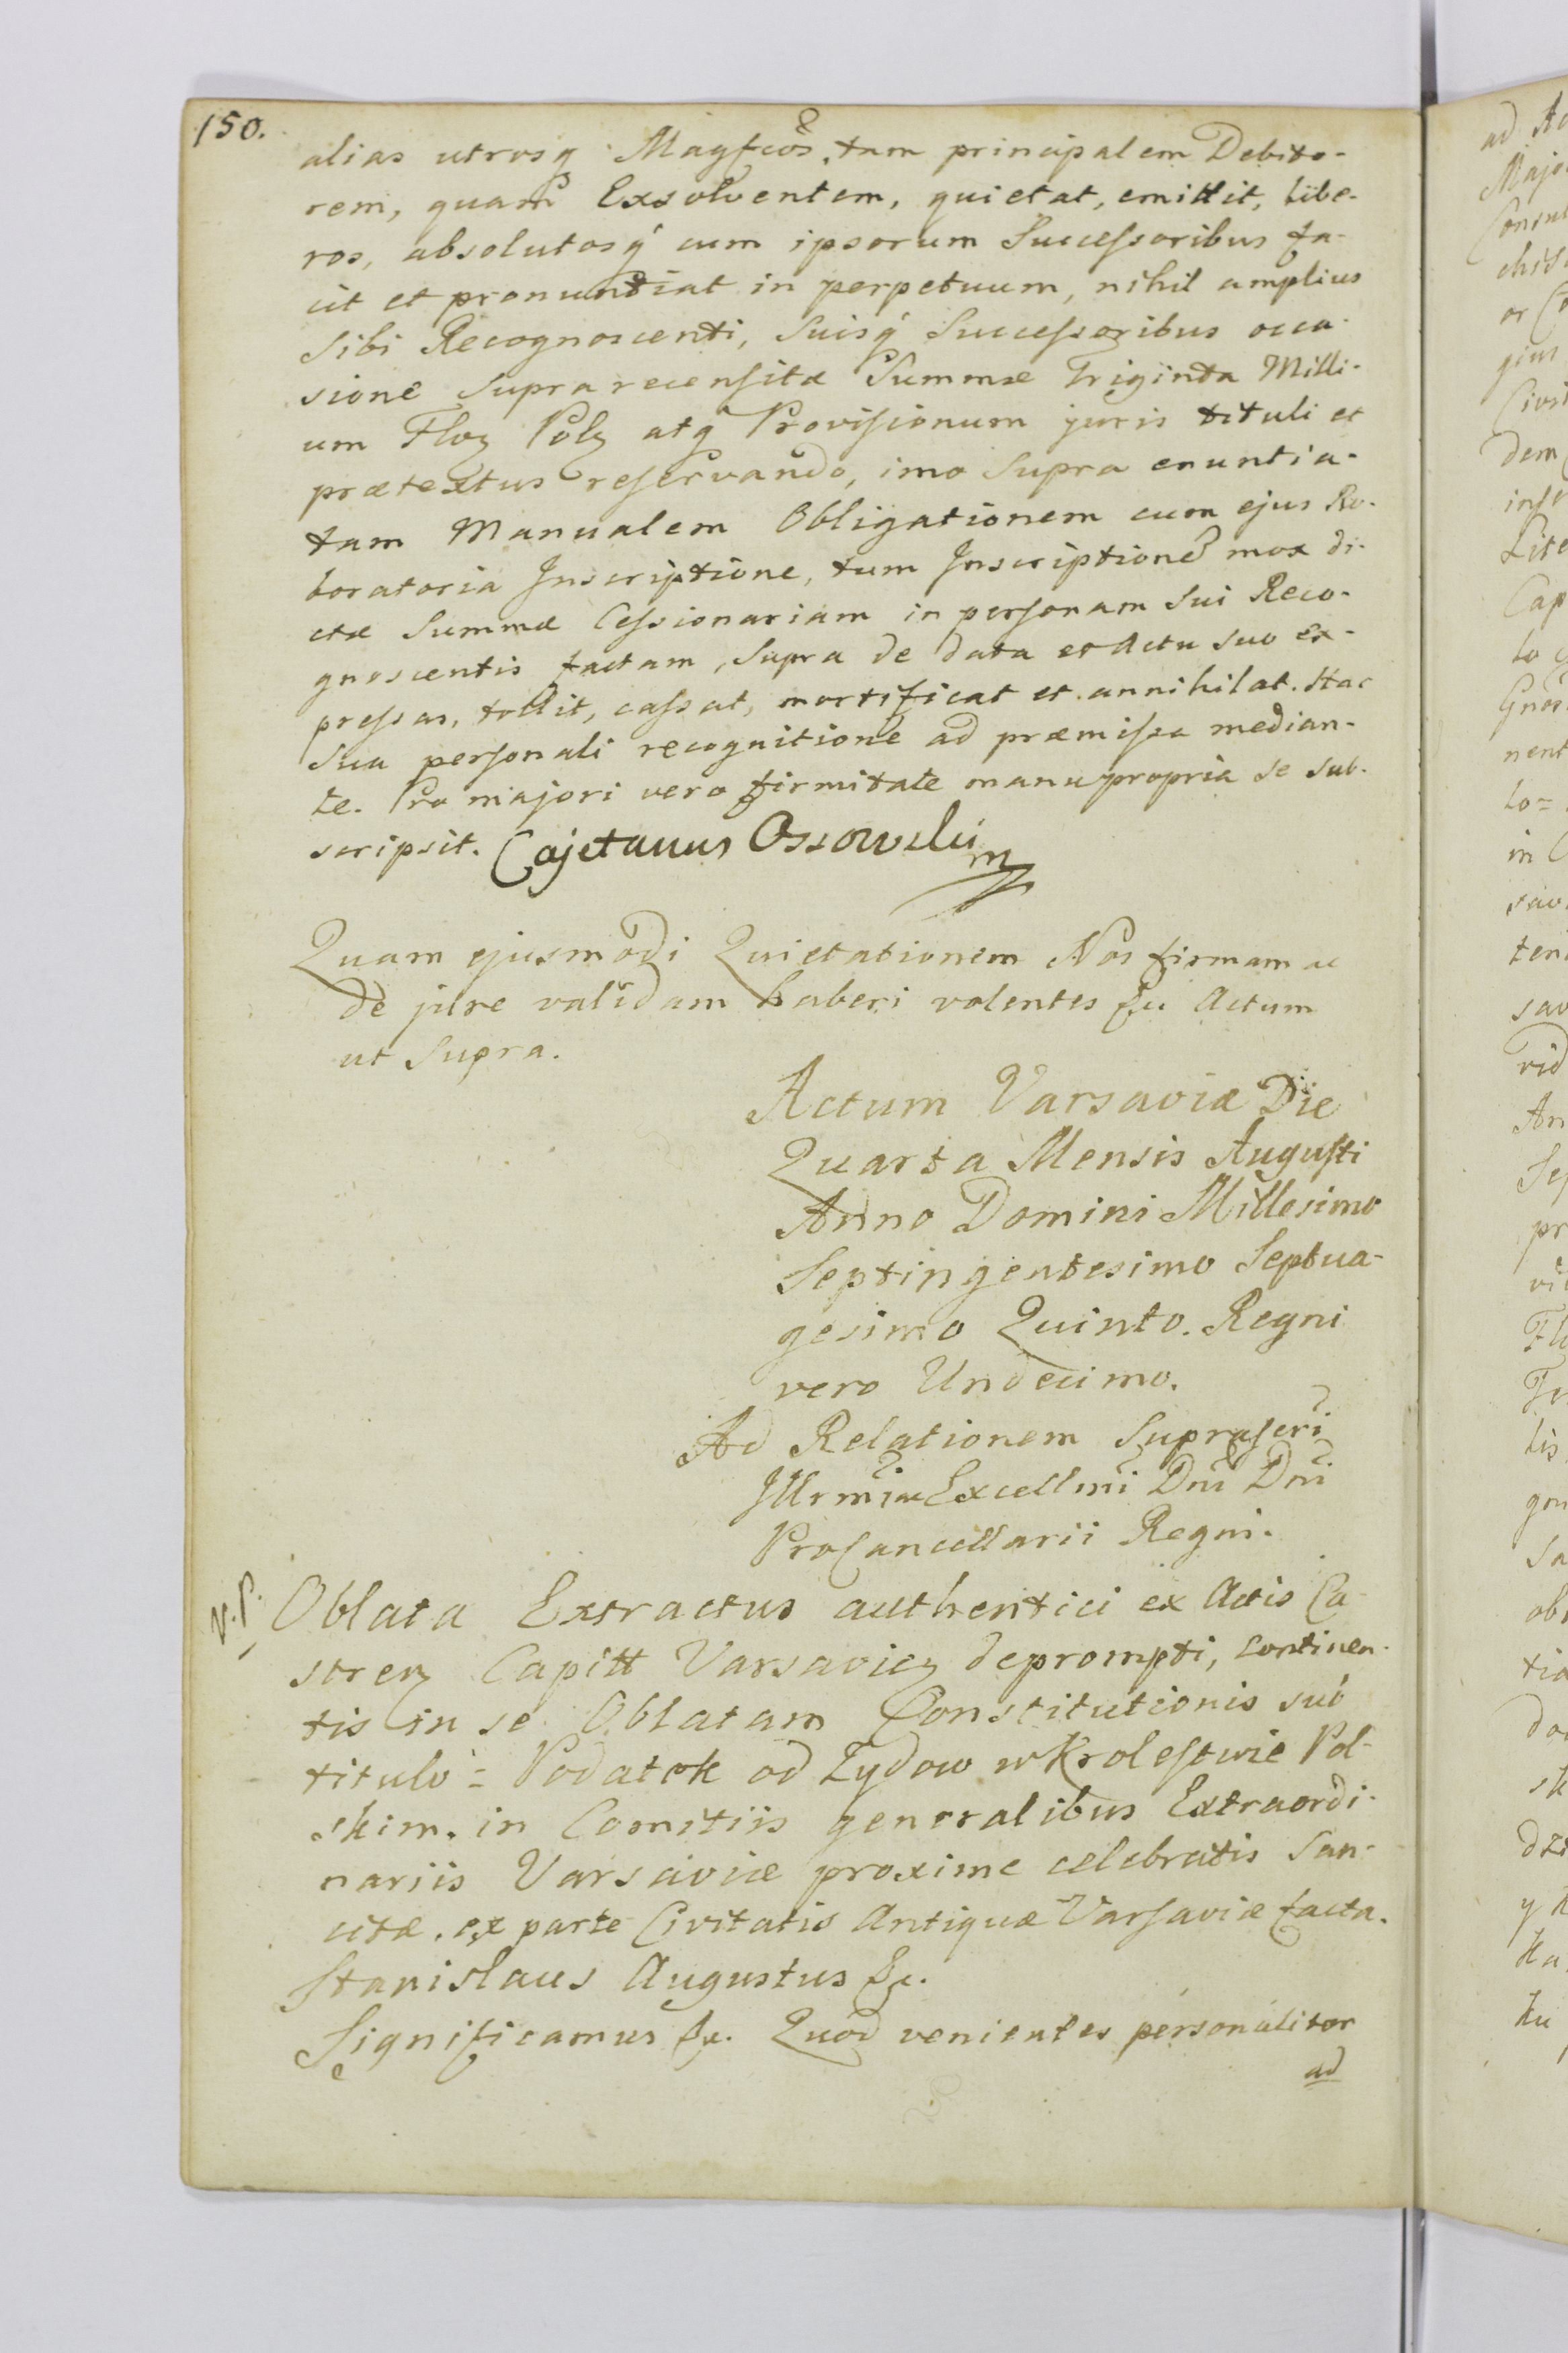 150.
alias utrosq Magfcos, tam principalem Debito-
rem, quam Exsolventem, quietat, emittit, libe-
ros, absolutosq cum ipsorum Successoribus fa-
cit et pronuntiat in perpetuum, nihil amplius
Sibi Recognoscenti, Suisq Successoribus occa-
sione supra recensitæ Summæ Triginta Milli-
um Flor Pol atq Provisionum juris tituli et
prætextus reservando, imo Supra enuntia-
tam Manualem Obligationem cum ejus Ro-
boratoria Inscriptione, tum Inscriptione mox di-
ctæ Summæ Cessionariam in personam Sui Reco-
gnoscentis factam, Supra de data et Actu suo ex-
pressas, tollit, cassat, mortificat et annihilat. Hac
Sua personali recognitione ad præmissa median-
te. Pro majori vero firmitate manu propria se sub-
scripsit. Cajetanus Ossowski
Quam ejusmodi Quietationem Nos firmam ac
de jure validam haberi volentes &c Actum
ut Supra.
Actum Varsaviæ Die
Quarta Mensis Augusti
Anno Domini Millesimo
Septingentesimo Septua-
gesimo Quinto. Regni
vero Undecimo.
Ad Relationem Suprascri
Illrmi Excellmi Dni Dni
ProCancellarii Regni.
Oblata Extractus authentici ex Actis Ca-
stren Capitt Varsavien deprompti, continen-
tis in se Oblatam Constitutionis sub
titulo = Podatek od Zydow w Krolestwie Pol-
skim. in Comitiis generalibus Extraordi-
nariis Varsaviæ proxime celebratis San-
citæ. ex parte Civitatis Antiquæ Varsaviæ facta.
Stanislaus Augustus &c.
Significamus &c. Quod venientes personaliter
ad